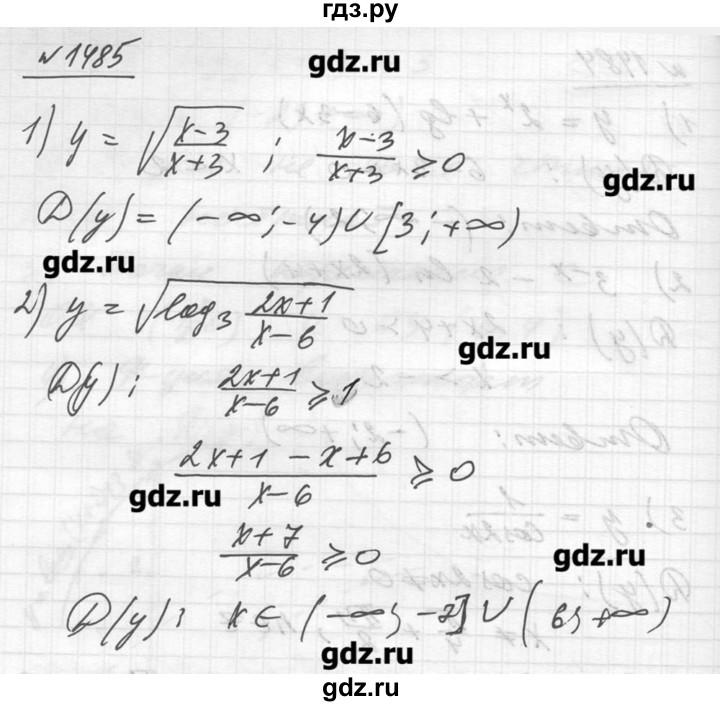 гдз.ру
№1485
gdz.ru
1) y = √((x-3)/(x+3)) ; (x-3)/(x+3) ⩾ 0
gdz.ru
D(y) = (-∞; -4) ∪ [3; +∞)
gdz.ru
2) y = √(log₃ (2x+1)/(x-6))
gdz.ru
D(y): (2x+1)/(x-6) ⩾ 1
(2x+1 -x+6)/(x-6) ⩾ 0
gdz.ru
(x+7)/(x-6) ⩾ 0
gdz.ru
D(y): x ∈ (-∞; -7] ∪ (6; +∞)
gdz.ru
gdz.ru